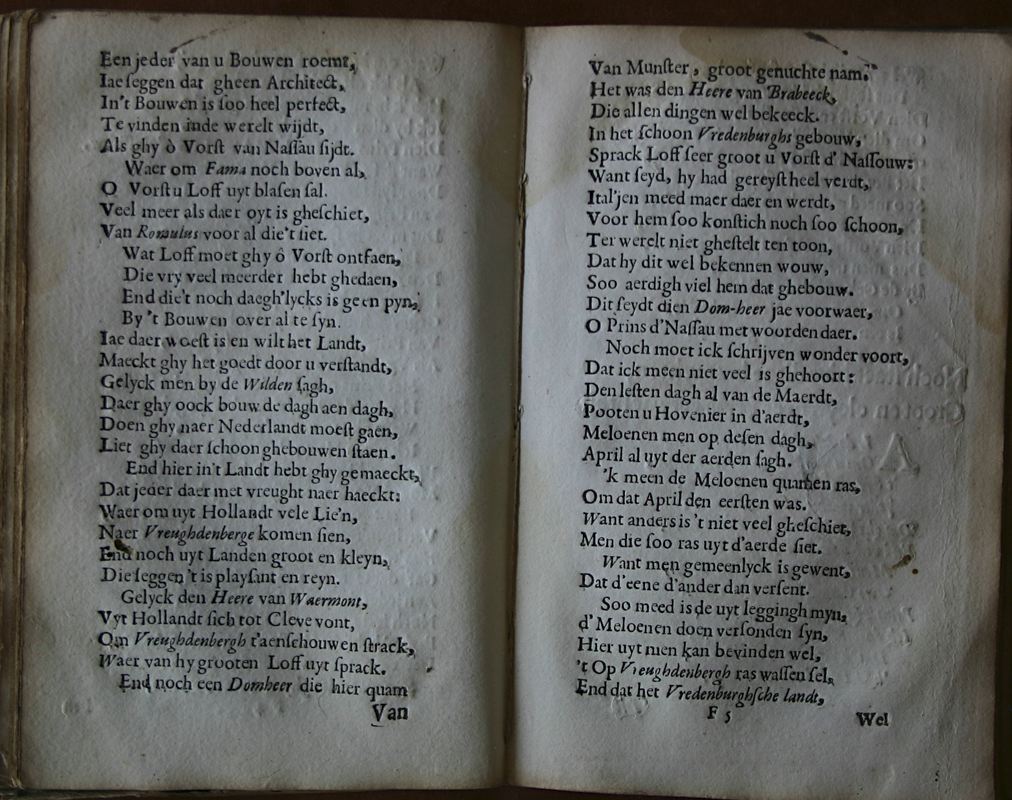 Een jeder van u Bouwen roemt,
Iae seggen dat gheen Architect,
In't Bouwen is soo heel perfect,
Te vinden inde werelt wijdt,
Als ghy ò Vorst van Nassau sijdt.
Waer om Fama noch boven al,
O Vorst u Loff uyt blasen sal.
Veel meer als daer oyt is gheschiet,
Van Romulus voor al die't siet.
Wat Loff moet ghy ô Vorst ontfaen,
Die vry veel meerder hebt ghedaen,
End die't noch daegh'lycks is geen pyn,
By 't Bouwen over al te syn.
Iae daer woest is en wilt het Landt,
Maeckt ghy het goedt door u verstandt,
Gelyck men by de Wilden sagh,
Daer ghy oock bouw de dagh aen dagh,
Doen ghy naer Nederlandt moest gaen,
Liet ghy daer schoon ghebouwen staen.
End hier in't Landt hebt ghy gemaeckt,
Dat jeder daer met vreught naer haeckt:
Waer om uyt Hollandt vele Lie'n,
Naer Vreughdenberge komen sien,
End noch uyt Landen groot en kleyn,
Die seggen 't is playsant en reyn.
Gelyck den Heere van Waermont,
Vyt Hollandt sich tot Cleve vont,
Om Vreughdenbergh t'aenschouwen strack,
Waer van hy grooten Loff uyt sprack.
End noch een Domheer die hier quam
Van
Van Munster, groot genuchte nam.
Het was den Heere van Brabeeck,
Die allen dingen wel bekeeck.
In het schoon Vredenburghs gebouw,
Sprack Loff seer groot u Vorst d' Nassouw:
Want seyd, hy had gereyst heel verdt,
Ital'jen meed maer daer en werdt,
Voor hem soo konstich noch soo schoon,
Ter werelt niet ghestelt ten toon,
Dat hy dit wel bekennen wouw,
Soo aerdigh viel hem dat ghebouw.
Dit seydt dien Dom-heer jae voorwaer,
O Prins d'Nassau met woorden daer.
Noch moet ick schrijven wonder voort,
Dat ick meen niet veel is ghehoort:
Den lesten dagh al van de Maerdt,
Pooten u Hovenier in d'aerdt,
Meloenen men op desen dagh,
April al uyt der aerden sagh.
'k meen de Meloenen quamen ras,
Om dat April den eersten was.
Want anders is 't niet veel gheschiet,
Men die soo ras uyt d'aerde siet.
Want men gemeenlyck is gewent,
Dat d'eene d'ander dan versent.
Soo meed is de uyt leggingh myn,
d' Meloenen doen versonden syn,
Hier uyt men kan bevinden wel,
't Op Vreughdenbergh ras wassen sel,
End dat het Vredenburghsche landt,
F 5
Wel